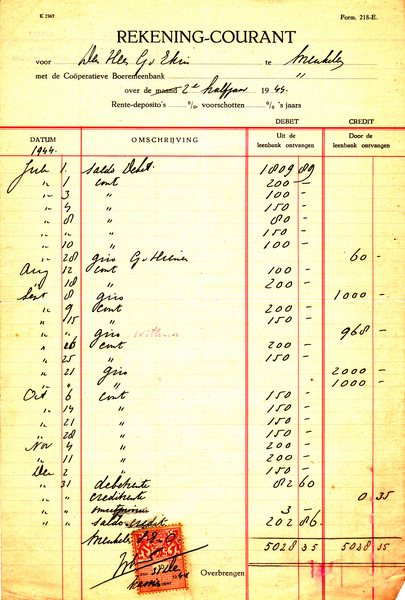 K 2347
Form. 218-E.
REKENING-COURANT
voor Den Heer G v Ekris te Meukelen
met de Coöperatieve Boerenleenbank "
over de maand 2e halfjaar 1944.
Rente-deposito's % voorschotten % 's jaars
DEBET CREDIT
DATUM OMSCHRIJVING Uit de leenbank ontvangen Door de leenbank ontvangen
1944.
Juli 1. saldo Debet. 1809 89
" 1 cont 200 –
" 3 " 100 –
" 4 " 150 –
" 8 " 80 –
" " " 150 –
" 10 " 100 –
" 28 giro G v 60 –
Aug 12 cont 100 –
" 18 " 200 –
Sept 8 giro 1000 –
" 9 cont 200 –
" 15 " 150 –
" " giro 968 –
" 26 cont 200 –
" 25 " 150 –
" 21 giro 2000 –
" " " 1000 –
Oct 6 cont 150 –
" 14 " 150 –
" 21 " 150 –
" 28 " 150 –
Nov 4 " 200 –
" 11 " 200 –
Dec 2 " 150 –
" 31 debetrente 82 60
" " creditrente 0 35
" " 3 –
" " saldo credit 202 86
5028 35 5028 35
Overbrengen